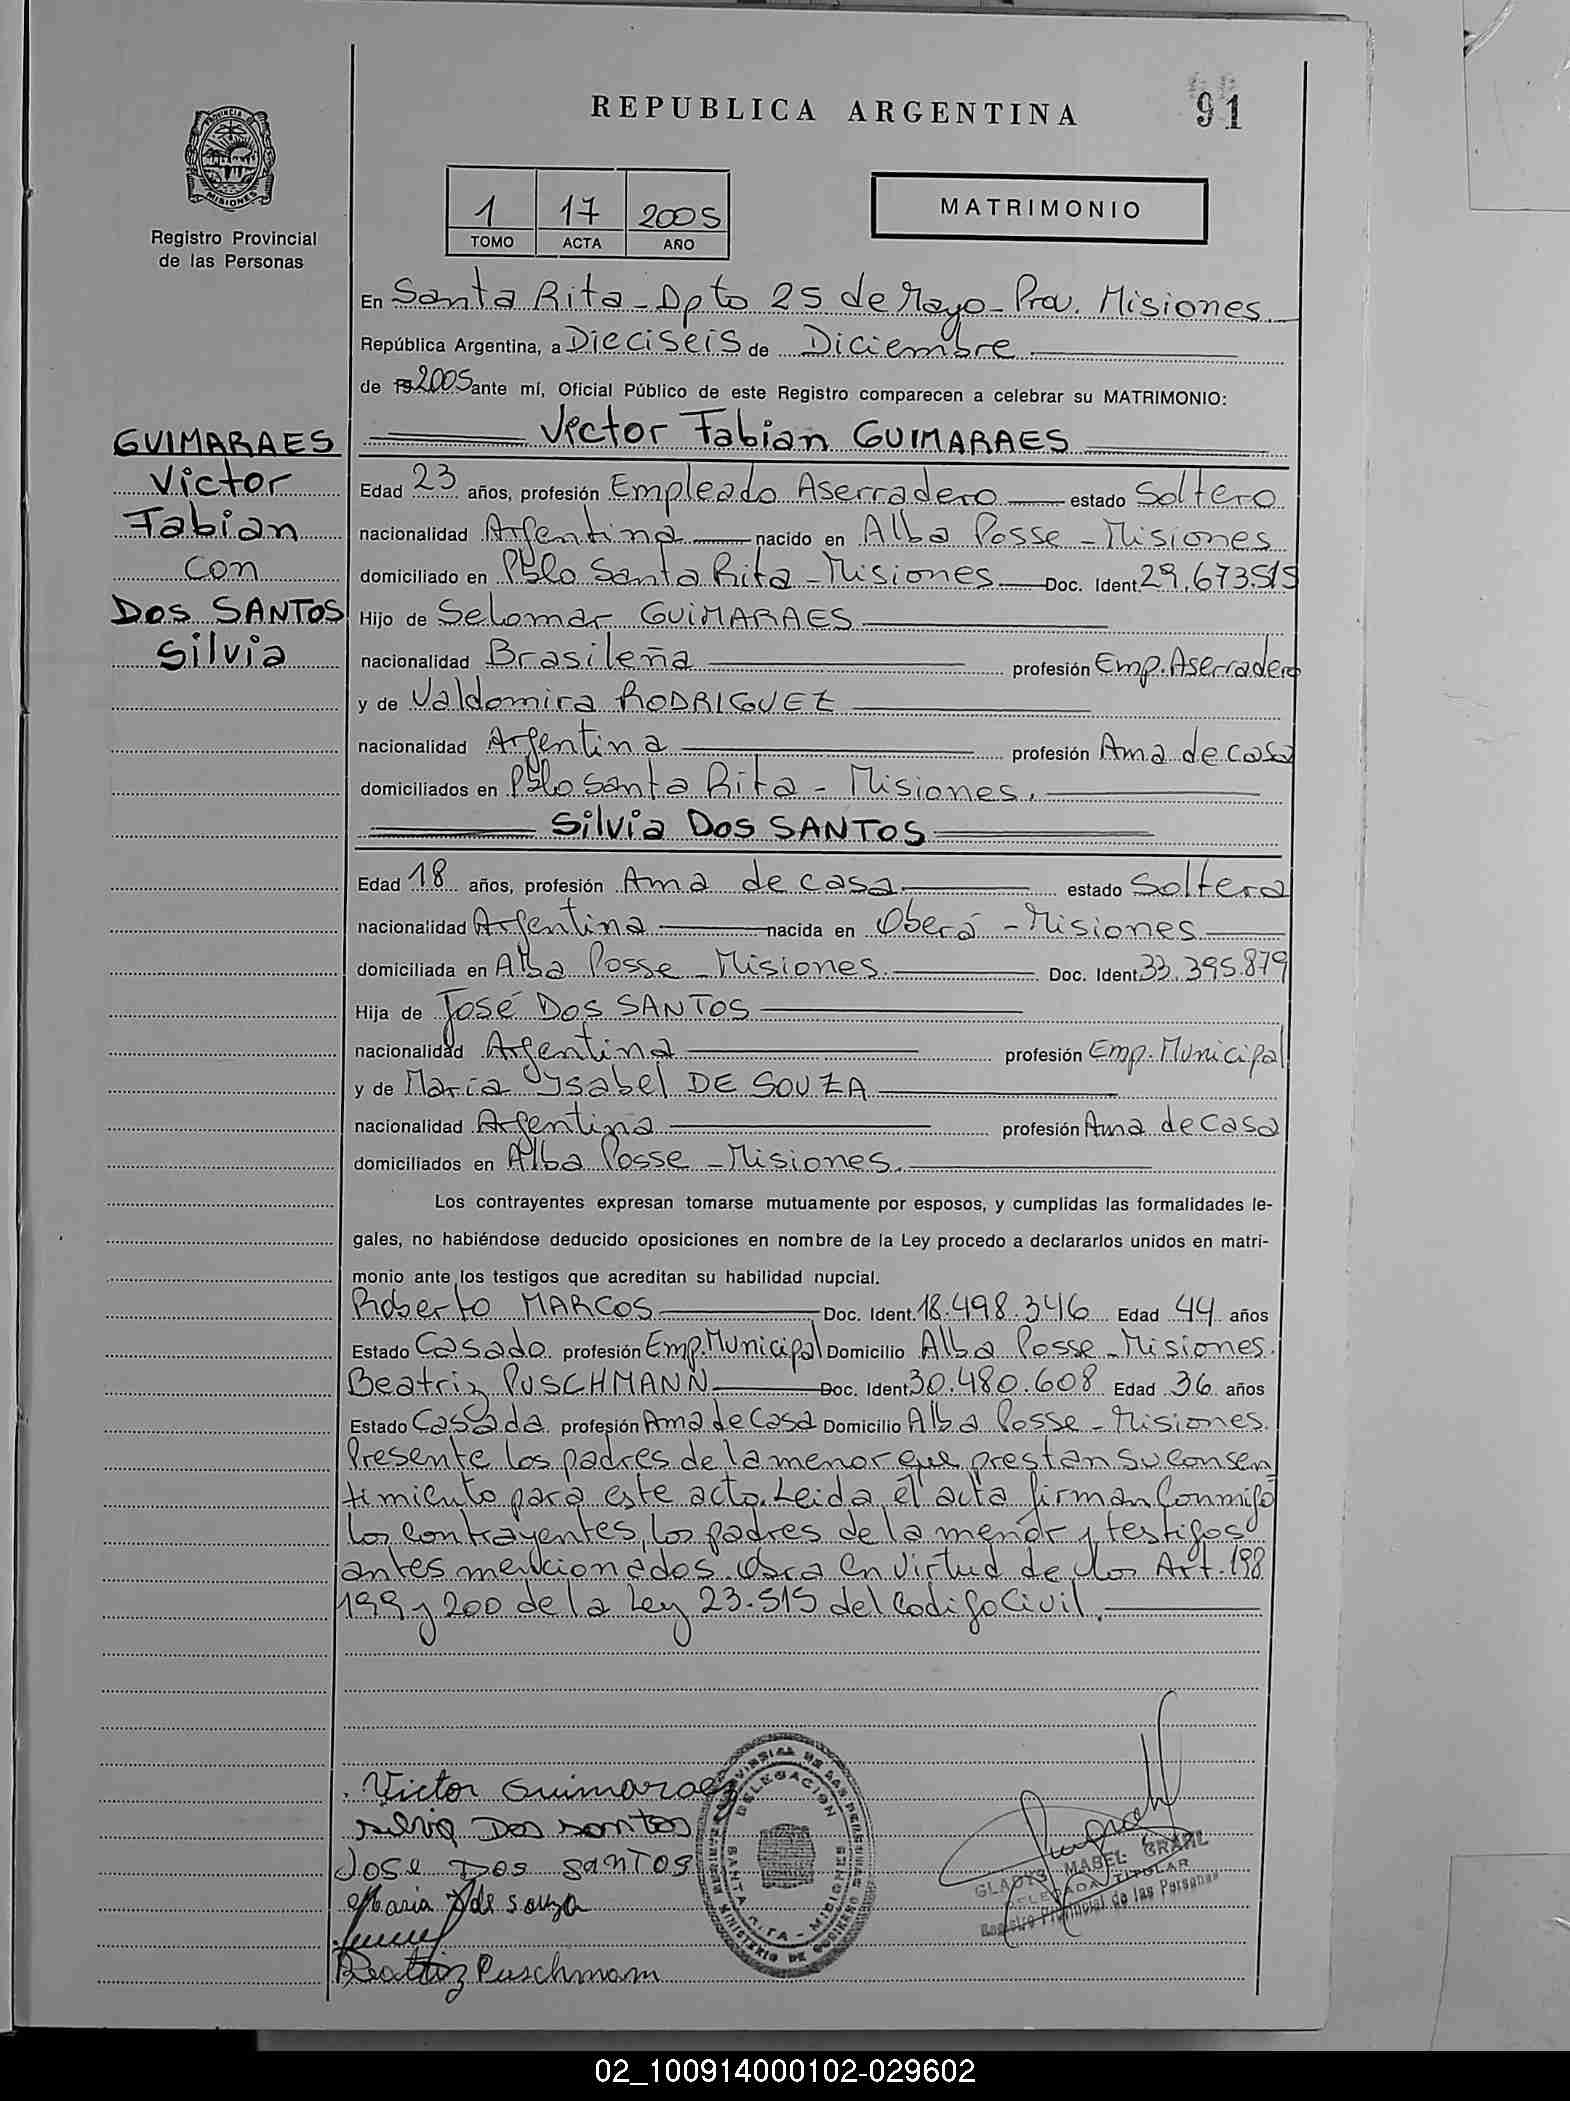 REPUBLICA ARGENTINA
91
PROVINCIA DE
MISIONES
Registro Provincial
de las Personas
1 17 2005
TOMO ACTA AÑO
MATRIMONIO
En Santa Rita - Dpto 25 de Mayo - Prov. Misiones
República Argentina, a Dieciseis de Diciembre
de 19 2005 ante mí, Oficial Público de este Registro comparecen a celebrar su MATRIMONIO:
GUIMARAES
Victor
Fabian
con
DOS SANTOS
Silvia
Victor Fabian GUIMARAES
Edad 23 años, profesión Empleado Aserradero estado Soltero
nacionalidad Argentina nacido en Alba Posse - Misiones
domiciliado en Pblo Santa Rita - Misiones Doc. Ident. 29.673.515
Hijo de Selomar GUIMARAES
nacionalidad Brasileña profesión Emp. Aserradero
y de Valdomira RODRIGUEZ
nacionalidad Argentina profesión Ama de casa
domiciliados en Pblo Santa Rita - Misiones.
Silvia DOS SANTOS
Edad 18 años, profesión Ama de casa estado Soltera
nacionalidad Argentina nacida en Oberá - Misiones
domiciliada en Alba Posse - Misiones. Doc. Ident. 33.395.879
Hija de José DOS SANTOS
nacionalidad Argentina profesión Emp. Municipal
y de María Ysabel DE SOUZA
nacionalidad Argentina profesión Ama de Casa
domiciliados en Alba Posse - Misiones.
Los contrayentes expresan tomarse mutuamente por esposos, y cumplidas las formalidades le-
gales, no habiéndose deducido oposiciones en nombre de la Ley procedo a declararlos unidos en matri-
monio ante los testigos que acreditan su habilidad nupcial.
Roberto MARCOS Doc. Ident. 18.498.346 Edad 44 años
Estado Casado profesión Emp. Municipal Domicilio Alba Posse - Misiones.
Beatriz PUSCHMANN Doc. Ident 30.480.608 Edad 36 años
Estado Casada profesión Ama de Casa Domicilio Alba Posse - Misiones.
Presente los padres de la menor que prestan su consen
timiento para este acto. Leida el acta firman Conmigo
los contrayentes, los padres de la menor y testigos
antes mencionados. Obra en virtud de los Art. 198
199 y 200 de la Ley 23.515 del Codigo Civil.
Victor Guimaraez
Silvia Dos santos
Jose Dos santos
Maria Y de souza
Beatriz Puschmann
DELEGACION
SANTA RITA - MISIONES
MINISTERIO DE GOBIERNO
GLADYS MABEL GRAHL
DELEGADA TITULAR
Registro Provincial de las Personas
02_100914000102-029602